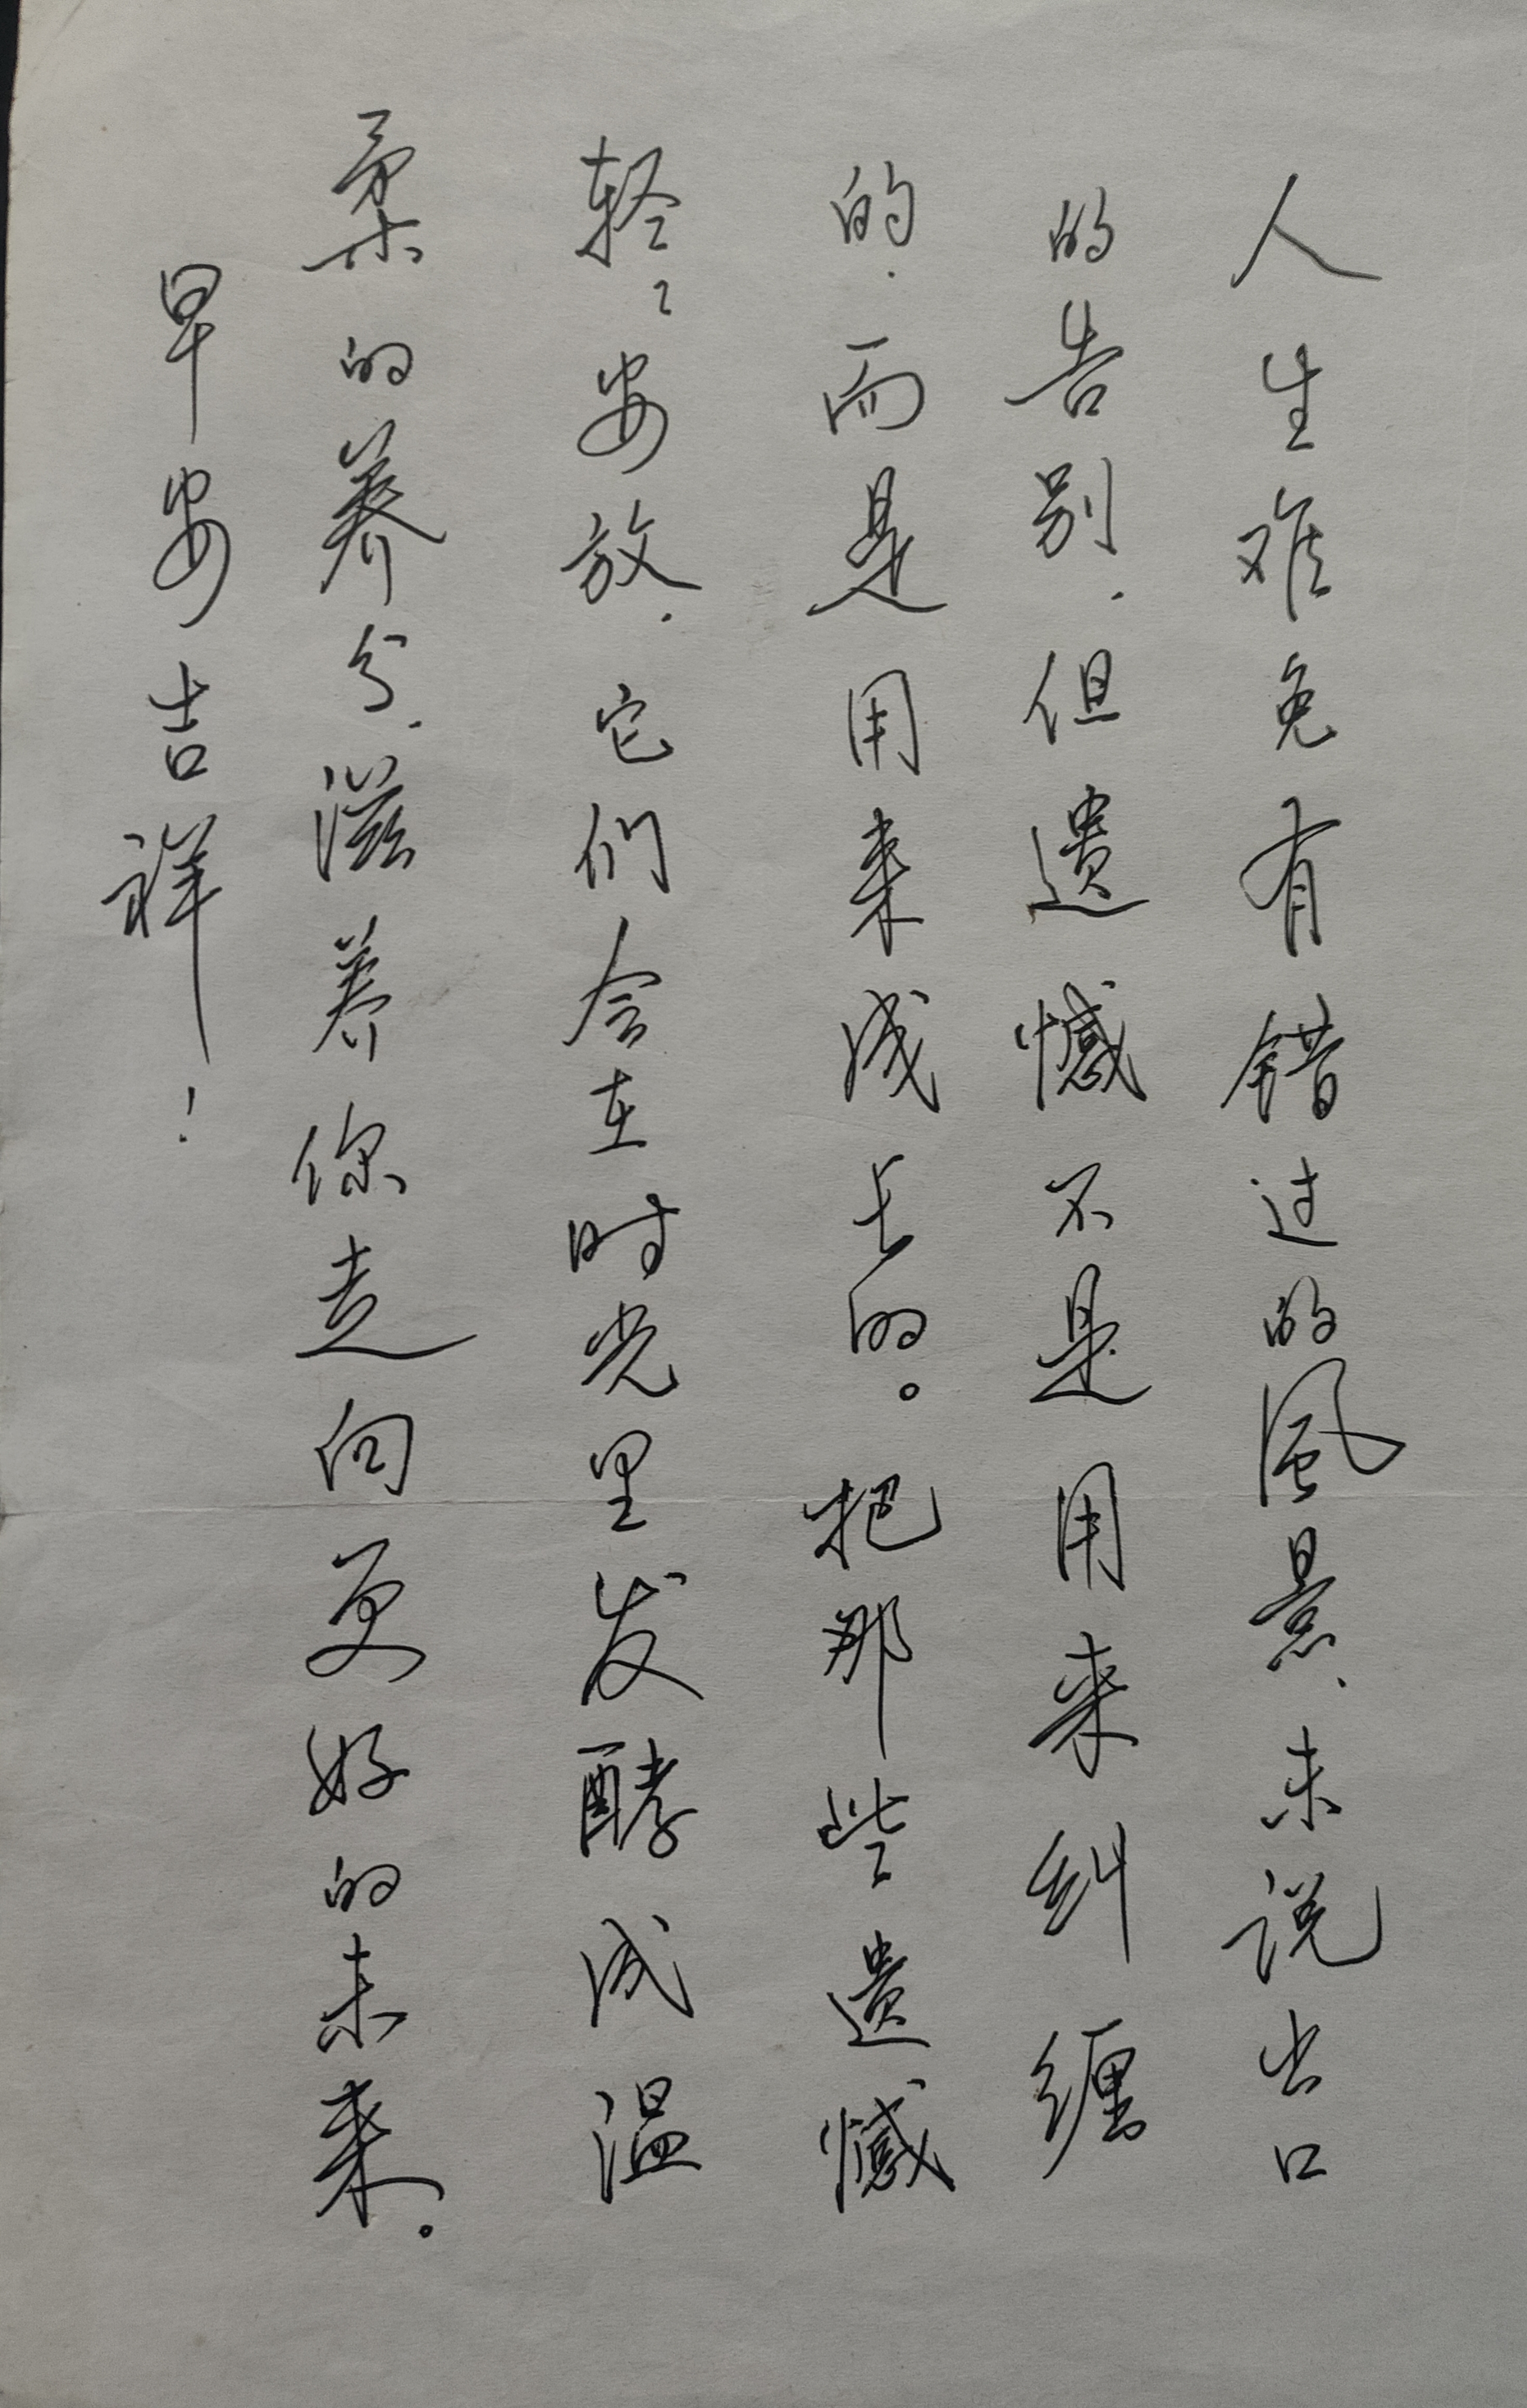 人生难免有错过的風景、未说出口
的告别.但遗憾不是用来纠缠
的.而是用来成长的。把那些遗憾
轻轻安放.它们会在时光里发酵成温
柔的养分.滋养你走向更好的未来。
早安吉祥!